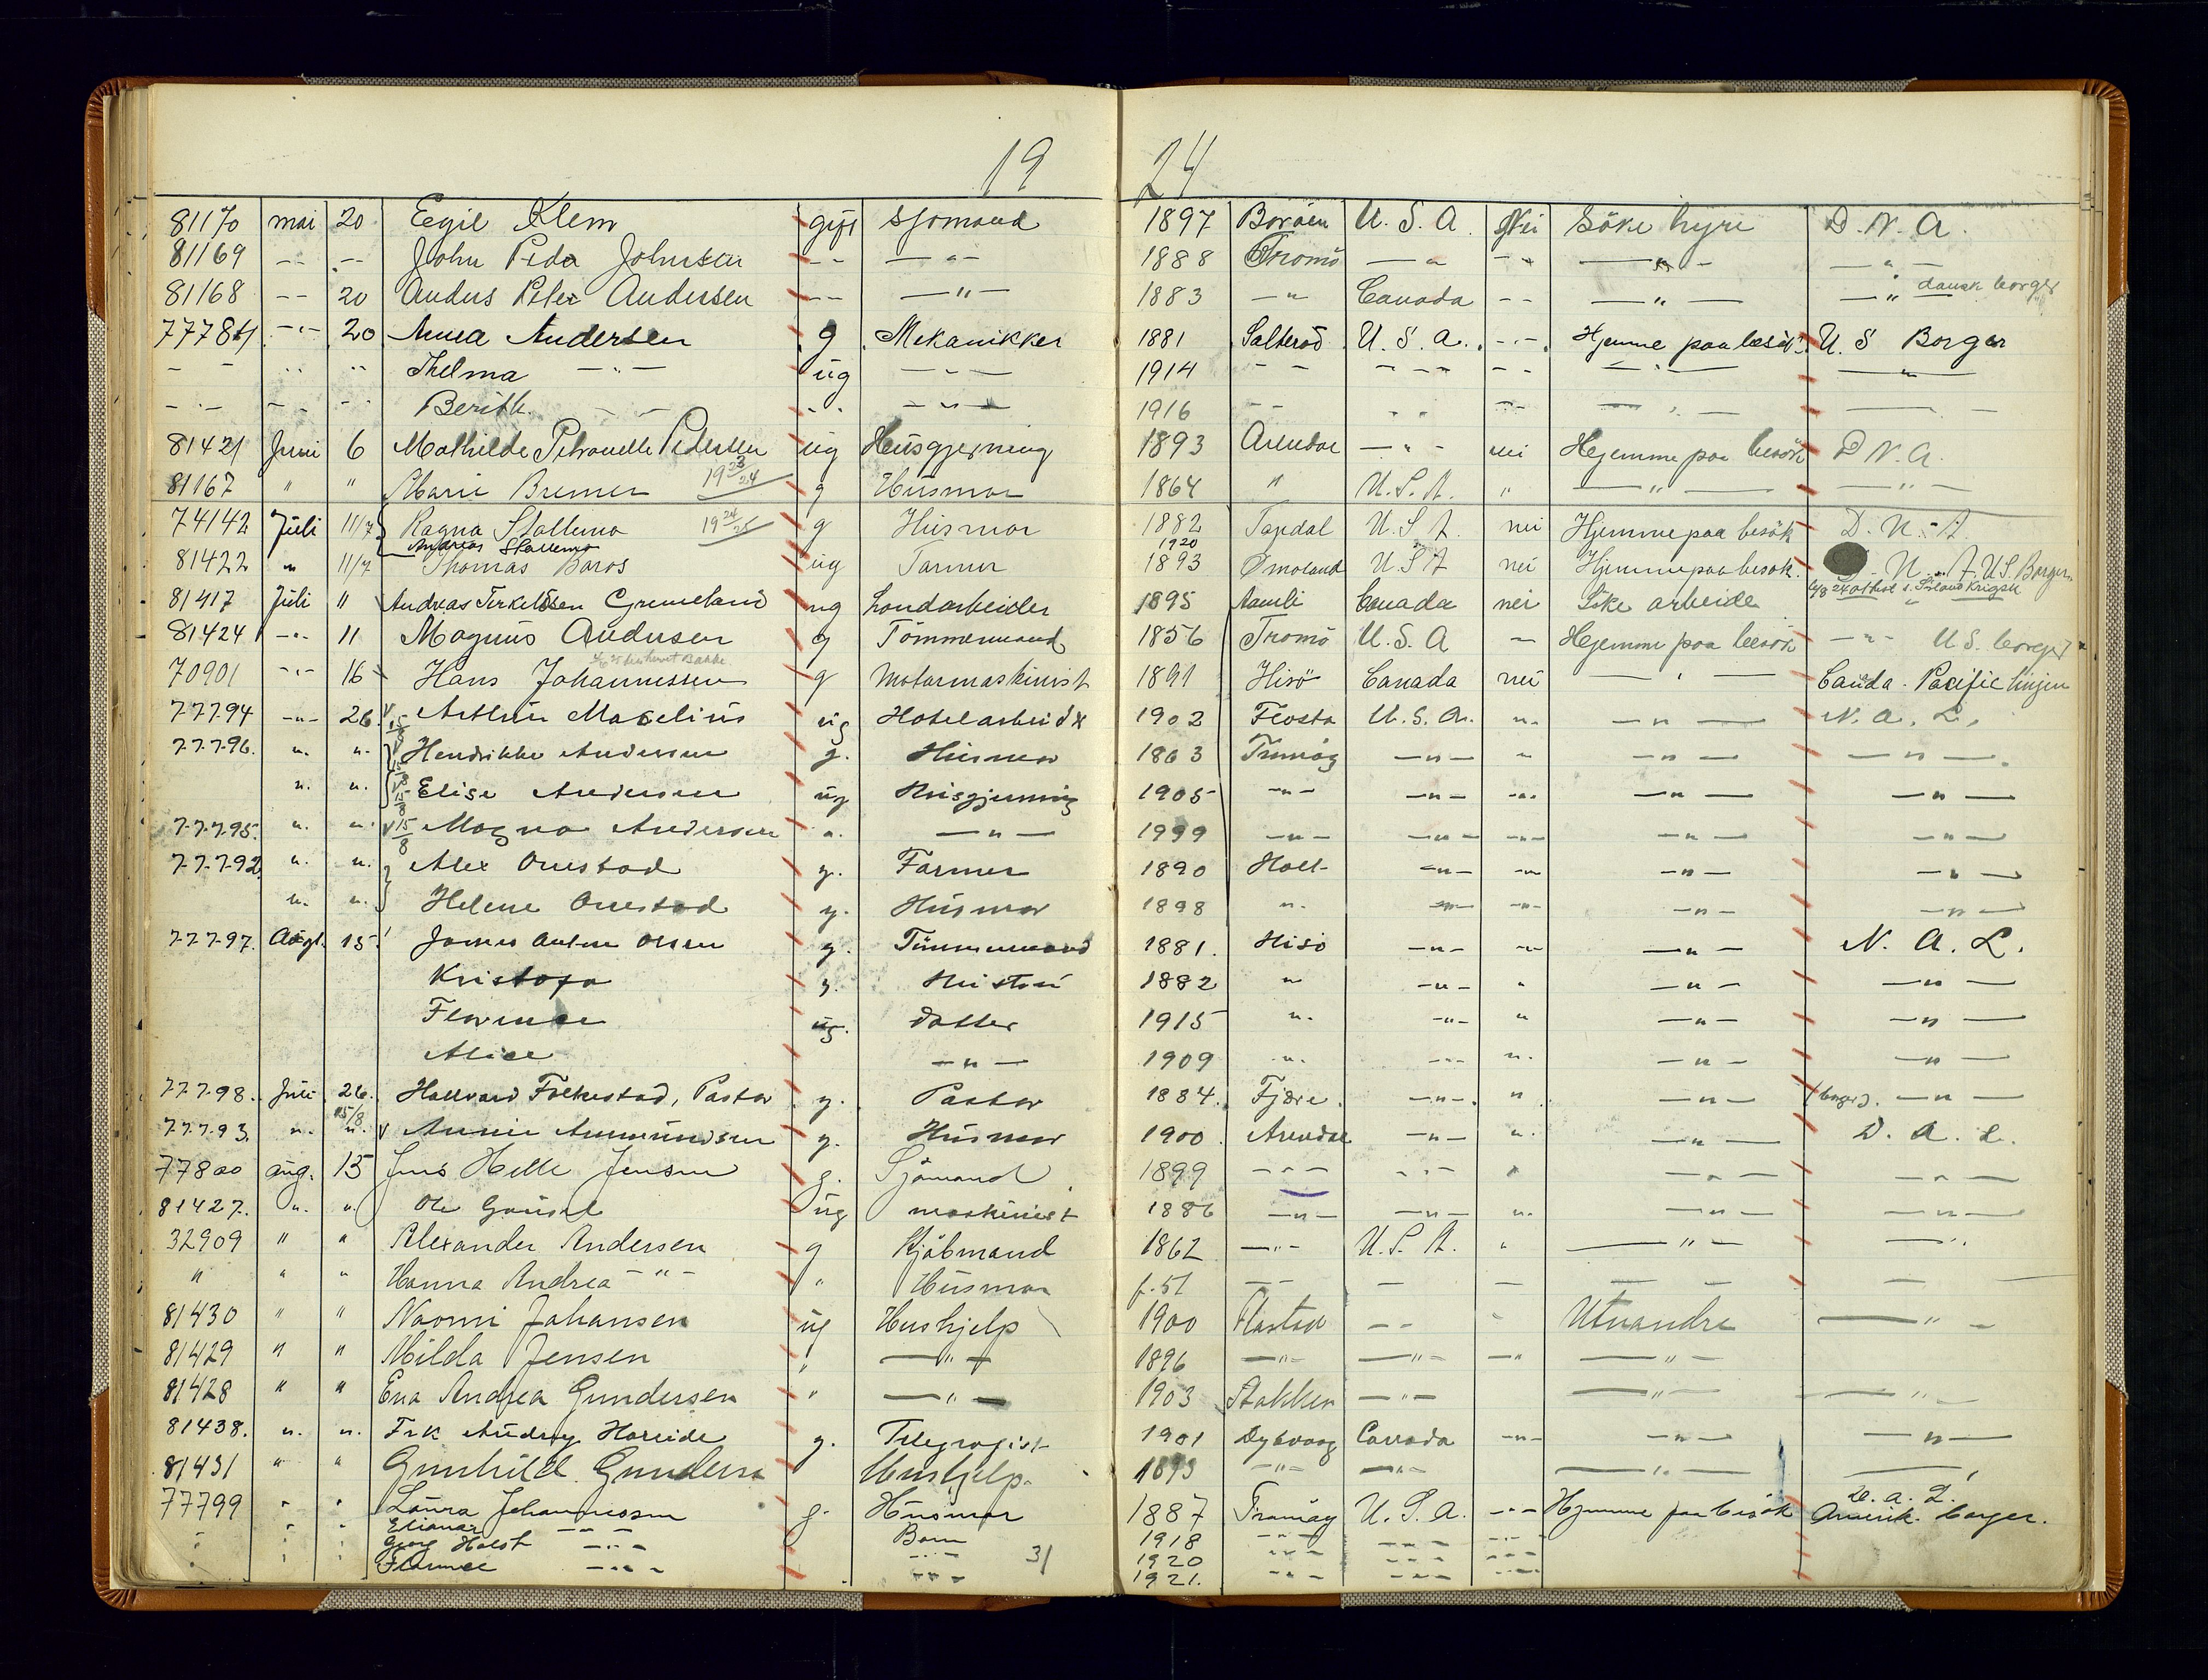 19 24
81170 mai 20 Eegil Klem gift sjømand 1897 Borøen U. S. A. Nei Söke hyre D. N. A.
81169 -- -- John Peder Johnsen -- — " — 1888 Tromö — " -- — " — — " —
81168 -- 20 Anders Peter Andersen -- — " — 1883 — " Canada -- — " — — " dansk borger
77784 -"- 20 Anna Andersen g Mekanikker 1881 Salteröd U. S. A. -"- Hjemme paa besök U. S Borger
- - " " Thelma — " — ug — " — 1914 - - - - - - - — " — — " —
- " - - - - " Berith - - - - — " — 1916 - - " " -- — " — — —
81421 Juni 6 Mathilde Petronelle Pedersen ug Husgjerning 1893 Arendal — " - nei Hejemme paa besök D N. A.
81167 " " Marie Bremer 19 23/24 g Husmor 1864 " U. S. A. " — " — — " —
74142 Juli 11/7 Ragna Stallemo 19 24/25 g Husmor 1882 U. S A. nei Hjemme paa besök D. N. A.
Andreas Stallemo 1920
81422 " 11/7 Thomas Baros ug Farmer 1893 Ømoland U. S A nei Hjemme paa besøk. N. A. U.S. Borger
81417 Juli " Andreas Terkelsen Grimeland ug Landarbeider 1895 Aamli Canada nei Söke arbeide "
81424 -"- 11 Magnus Andersen g Tömmermand 1856 Tromö U. S. A — Hejemme paa besök — " — U S. borger
70901 -"- 16 Hans Johannessen g Motormaskinist 1891 Hisö Canada nei — " — Canda. Pacific linjen
77794 -"- 26. v 15/8 Arthur Macelius ug Hotelarbeider 1902 Flosta U. S. A. ". — " — N. A. L.
77796. ". ". Hendrikke Andersen g. Husmor 1863 Tromög — " — " — " — — " —.
". ". v 15/8 Elise Andersen ug Husgjerning 1905 — " — — " — -"- — " — — " —
77795. ". ". v 15/8 Magna Andersen ". — " — 1999 — " — — " — -"- — " — — " —
77792 ". ". Alex Onestad g. Farmer 1890 Holt — " — -"- — " — — " —
". ". Helene Onestad g. Husmor 1898 ". — " — -"- — " — — " —
77797. Augt. 15. James Anton Olsen g. Tömmermand 1881. Hisö — " — -"- — " — N. A. L.
Kristofa g. Hustru 1882 " — " — " — " — — " —
Florence ug. datter 1915 ". — " — " — " — — " —
Alice — " — 1909 ". — " — ". — " — — " —
77798. Juli 26. Hallvard Folkestad, Pastor g. Pastor 1884. Fjære. — " —. ". — " — (borger). — " —
77793. ". 15/8 ". v Annie Ammundsen g. Husmor 1900. Arendal — " — ". — " — D. A. L.
77800 aug. 15 Jens Helle Jensen g. Sjömand 1899 - - - - - - " — " — — " —
81427. ". ". Ole Gausel ug maskinist 1886 — " — — " — ". — " — — " —
32909 " " Alexander Andersen g Kjöbmand 1862 — " — U. S. A. " — " — — " —
" " " Hanna Andrea — " — " Husmor f. 51 — — — — — — — —
81430 " " Naomi Johansen ug Hushjelp 1900 Flastad — — " Utvandre — " —
81429 " " Milda Jensen " — " — 1896 — " — — " — — " — " —
81428 " " Eva Andrea Gundersen " — " — 1903 Stokken — " — — " — — " —
81438. ". ". Frk Audrey Hareide g. Telegrafist 1901 Dybvaag Canada -"- — " — — " —
81431 " " Gunhild Gundersen Hushjelp. 1893 — " — — " — — " — —
77799 " " Laura Johannessen g. Husmor 1887 Tromöy U. S. A. -"- Hjemme paa besök Amerik. borger.
" " " Elianar — " — Barn 1918 — " — — " — -"-
" " " Georg Holst — " — — " — 1920 — " — — " — -"-
" Florence — " — — " — 1921. — " — — " — -"-
31